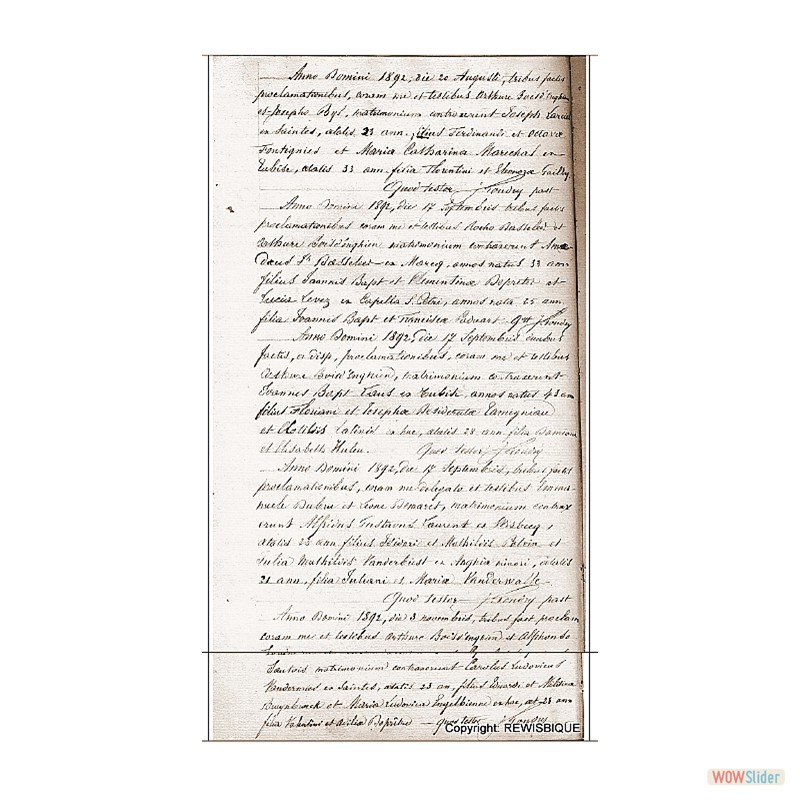 Anno Domini 1892, die 20 Augusti, tribus factis
proclamationibus, coram me et testibus Arthure Boisd'Enghien
et Josepho Bijl, matrimonium contraxerunt Joseph
ex Saintes, aetatis 23 ann., filius Ferdinandi et Octavae
Fontignies et Maria Catharina Marechal ex
Tubise, aetatis 33 ann. filia Florentini et Eleonorae
Quod testor J. Gondry past
Anno Domini 1892, die 17 Septembris tribus factis
proclamationibus coram me et testibus Rocho Basselet et
Arthure Boisd'enghien matrimonium contraxerunt Ama-
daeus Basselet ex Marcq, annos natus 33 ann
filius Joannis Bapt et Clementinae Depreter et
Lucia Levez ex Capella St Petri, annos nata 25 ann.
filia Joannis Bapt et Franciscae J. Gondry
Anno Domini 1892, die 17 Septembris duabus
factis, a disp, proclamationibus, coram me et testibus
Arthure Boisd'Enghien, matrimonium contraxerunt
Joannes Bapt ex Tubise, annos natus 43 ann
filius Floriani et Josephae Desideratae
et Clotildis ex hac, aetatis 28 ann filia Damiani
et Elisabeth Huleu. Quod testor J. Gondry
Anno Domini 1892, die 17 Septembris, tribus factis
proclamationibus, coram me delegato et testibus Emma-
nuele Dubru et Leone Demaret, matrimonium contrax
erunt Alfridus Gustavus Laurent ex Bisbecq,
aetatis 23 ann. filius Isidori et Mathildis et
Julia Mathildis Vanderbust ex Anghia minori, aetatis
21 ann, filia Juliani et Maria Vanderwalle
Quod testor J. Gondry past
Anno Domini 1892, die 3 novembris, tribus fact proclam
coram me et testibus Arthure Boisd'Enghien et Alphonso
matrimonium contraxerunt Carolus Ludovicus
ex Saintes, aetatis 23 an, filius Eduardi et
et Maria Ludovica ex hac, aet 28 ann
filia Valentini et quod testor J. Gondry
Copyright: REWISBIQUE
WOWSlider